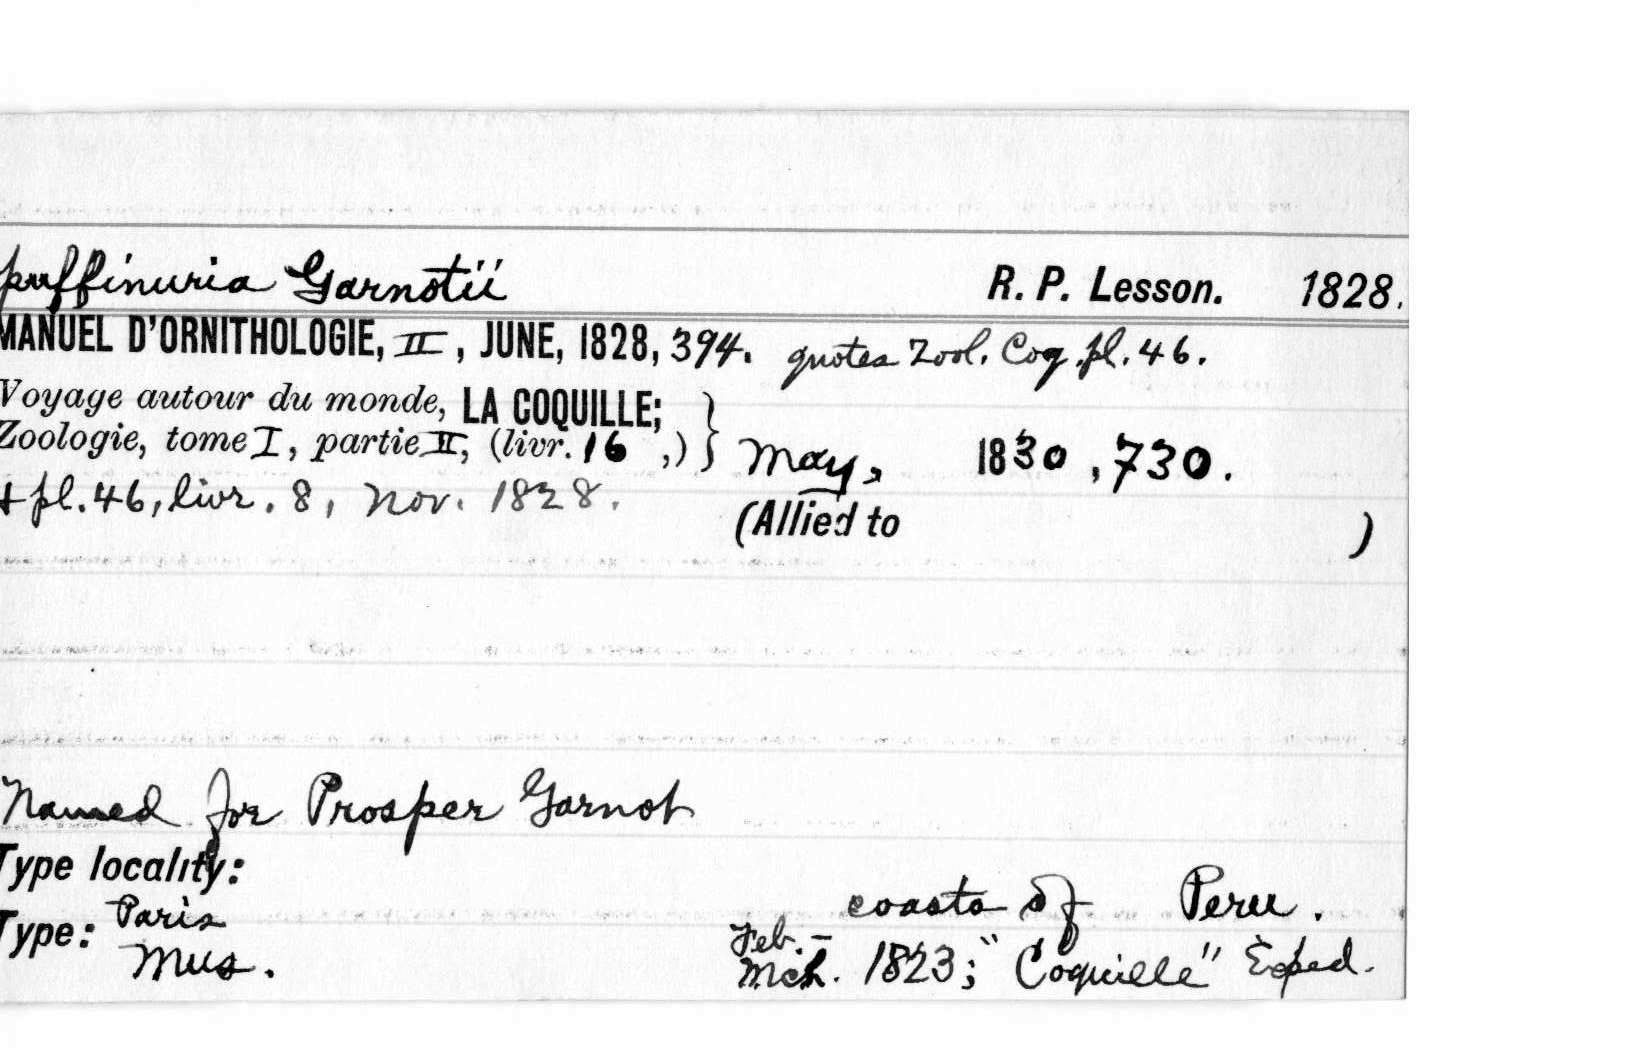 puffinuria Garnotii R. P. Lesson. 1828.
MANUEL D'ORNITHOLOGIE, II, JUNE, 1828, 394. quotes Zool. Coq. pl. 46.
Voyage autour du monde, LA COQUILLE;
Zoologie, tome I, partie II, (livr. 16 ,) } May, 1830, 730.
+ pl. 46, livr. 8, Nov. 1828.
(Allied to )
Named for Prosper Garnot
Type locality:
coasts of Peru.
Type: Paris
Mus.
Feb. –
Mch. 1823; "Coquille" Exped.